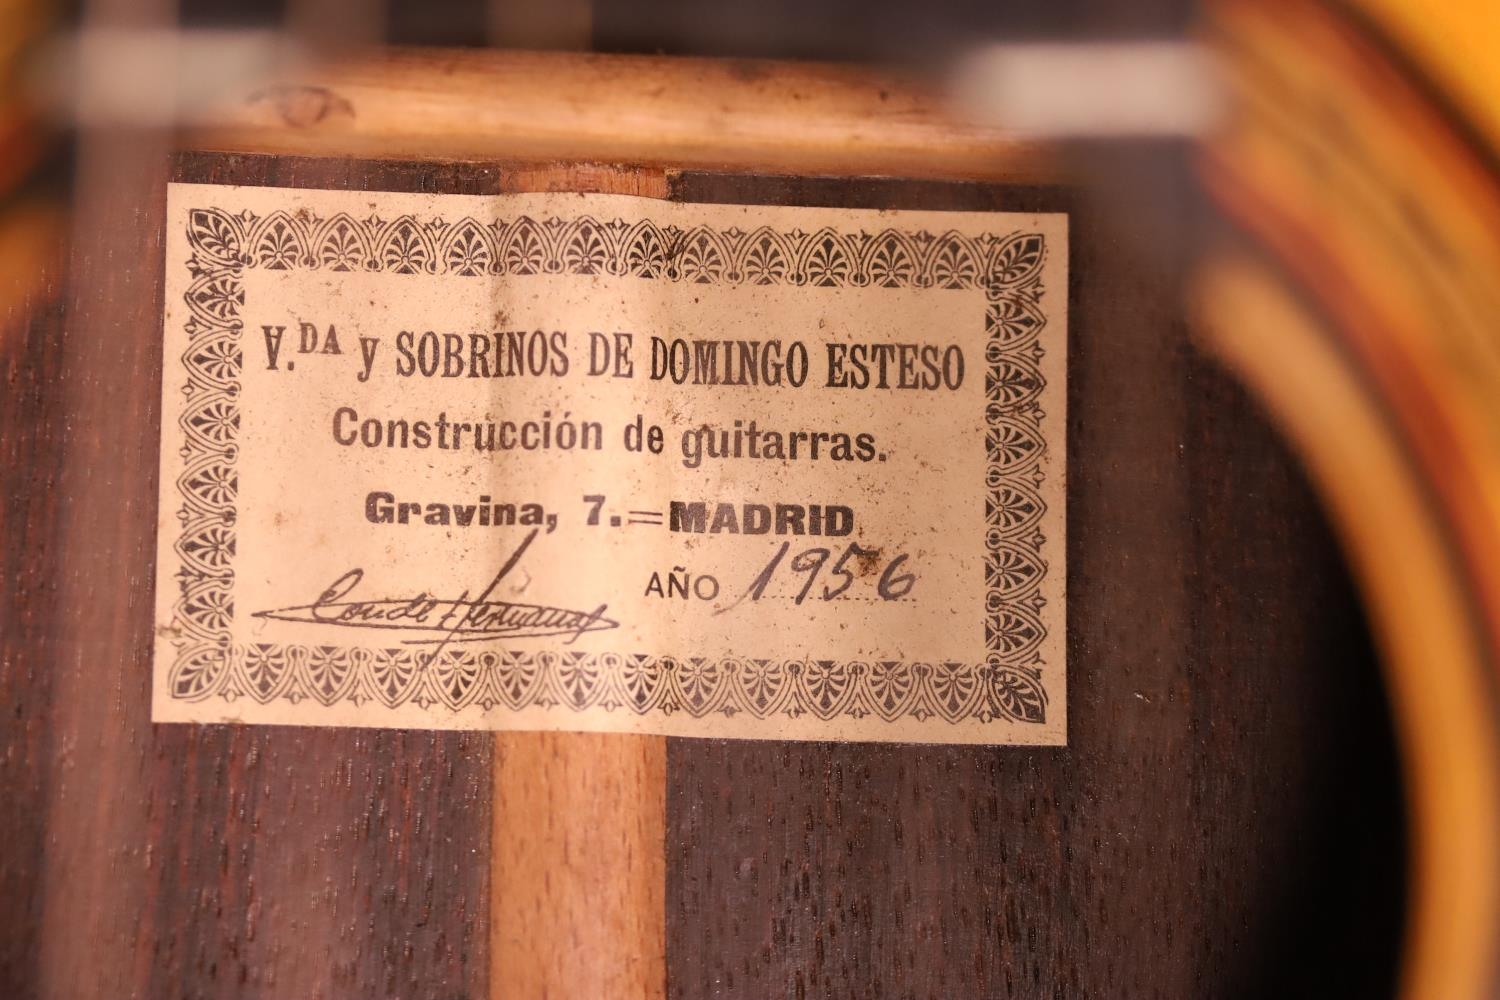 V.DA y SOBRINOS DE DOMINGO ESTESO
Construcción de guitarras.
Gravina, 7.=MADRID
AÑO 1956
Conde Hermanos